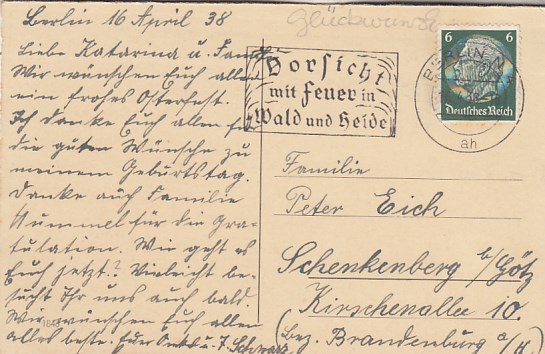 Berlin 16 April 38
Liebe Katarina u. Familie
Wir wünschen Euch allen
ein frohes Osterfest.
Ich danke Euch allen für
die guten Wünsche zu
meinem Geburtstag.
Danke auch Familie
Hummel für die Gra-
tulation. Wie geht es
Euch jetzt? Vielleicht be-
sucht Ihr uns auch bald.
Wir wünschen Euch allen
alles beste. Euer Onkel u. T. Schwarz
Glückwunsch
Vorsicht
mit Feuer in
Wald und Heide
BERLIN
ah
6 6
Deutsches Reich
Familie
Peter Eich
Schenkenberg b/Götz
Kirschenallee 10.
(Bez. Brandenburg a/H)